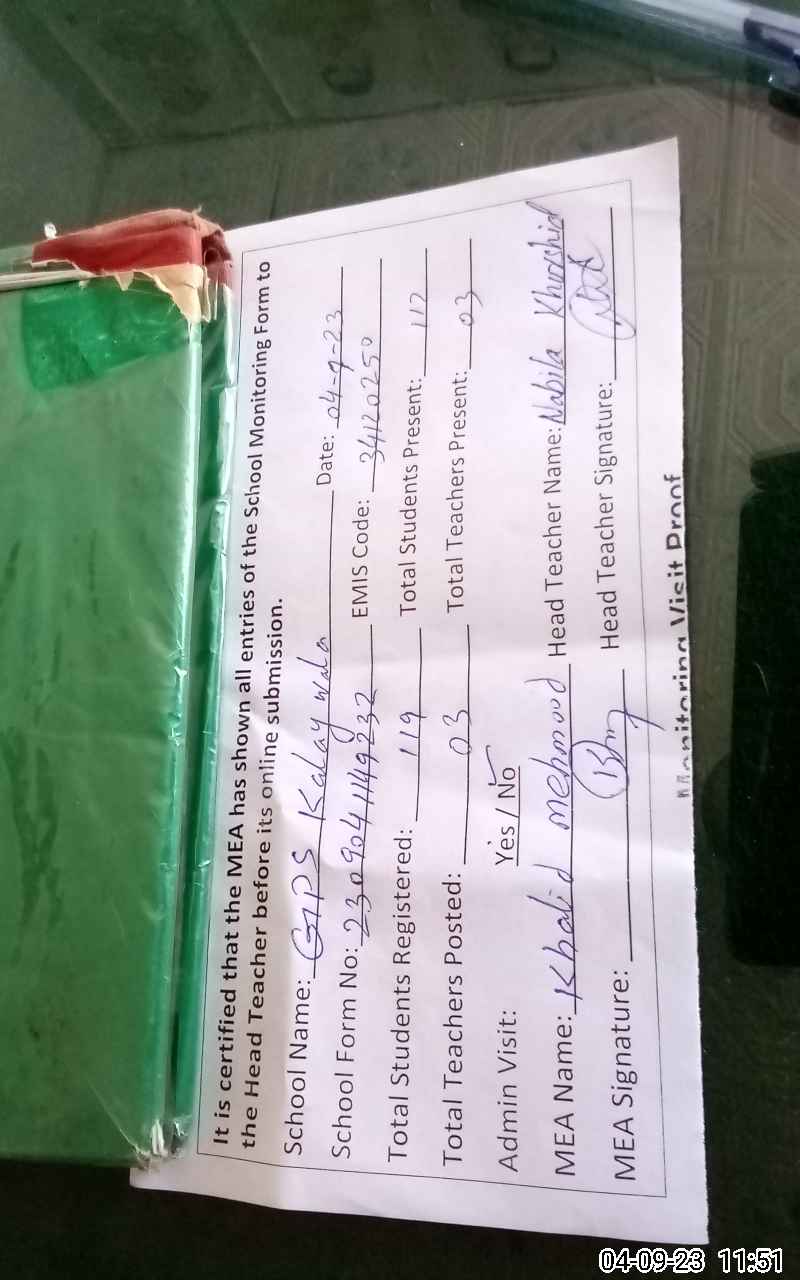 It is certified that the MEA has shown all entries of the School Monitoring Form to
the Head Teacher before its online submission.
School Name: GPS Kalay wala Date: 04-9-23
School Form No: 2309041149232 EMIS Code: 34120250
Total Students Registered: 119 Total Students Present: 112
Total Teachers Posted: 03 Total Teachers Present: 03
Admin Visit: Yes / No
MEA Name: Khalid mehmood Head Teacher Name: Nabila Khurshid
MEA Signature: Head Teacher Signature:
Monitoring Visit Proof
04-09-23 11:51